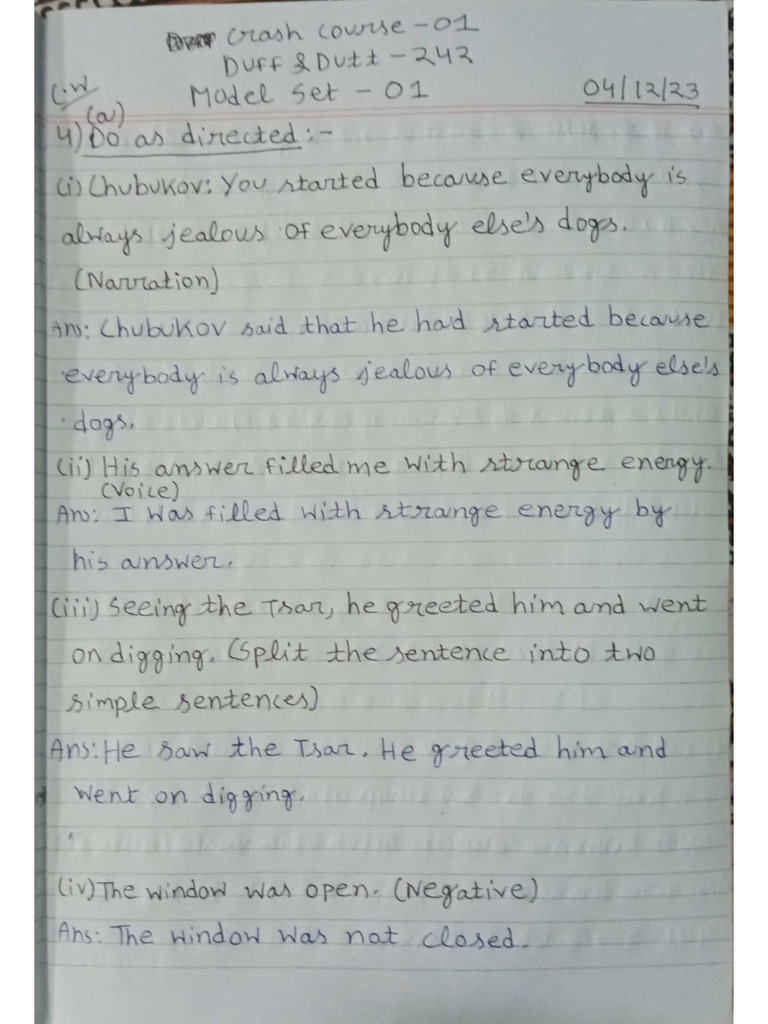 Crash Course - 01
Duff & Dutt - 242
C.W Model Set - 01 04/12/23
(a)
4) Do as directed :-
(i) Chubukov: You started because everybody is
always jealous of everybody else's dogs.
(Narration)
Ans: Chubukov said that he had started because
everybody is always jealous of everybody else's
dogs.
(ii) His answer filled me with strange energy.
(Voice)
Ans: I was filled with strange energy by
his answer.
(iii) Seeing the Tsar, he greeted him and went
on digging. (Split the sentence into two
simple sentences)
Ans: He saw the Tsar. He greeted him and
went on digging.
(iv) The window was open. (Negative)
Ans: The window was not closed.